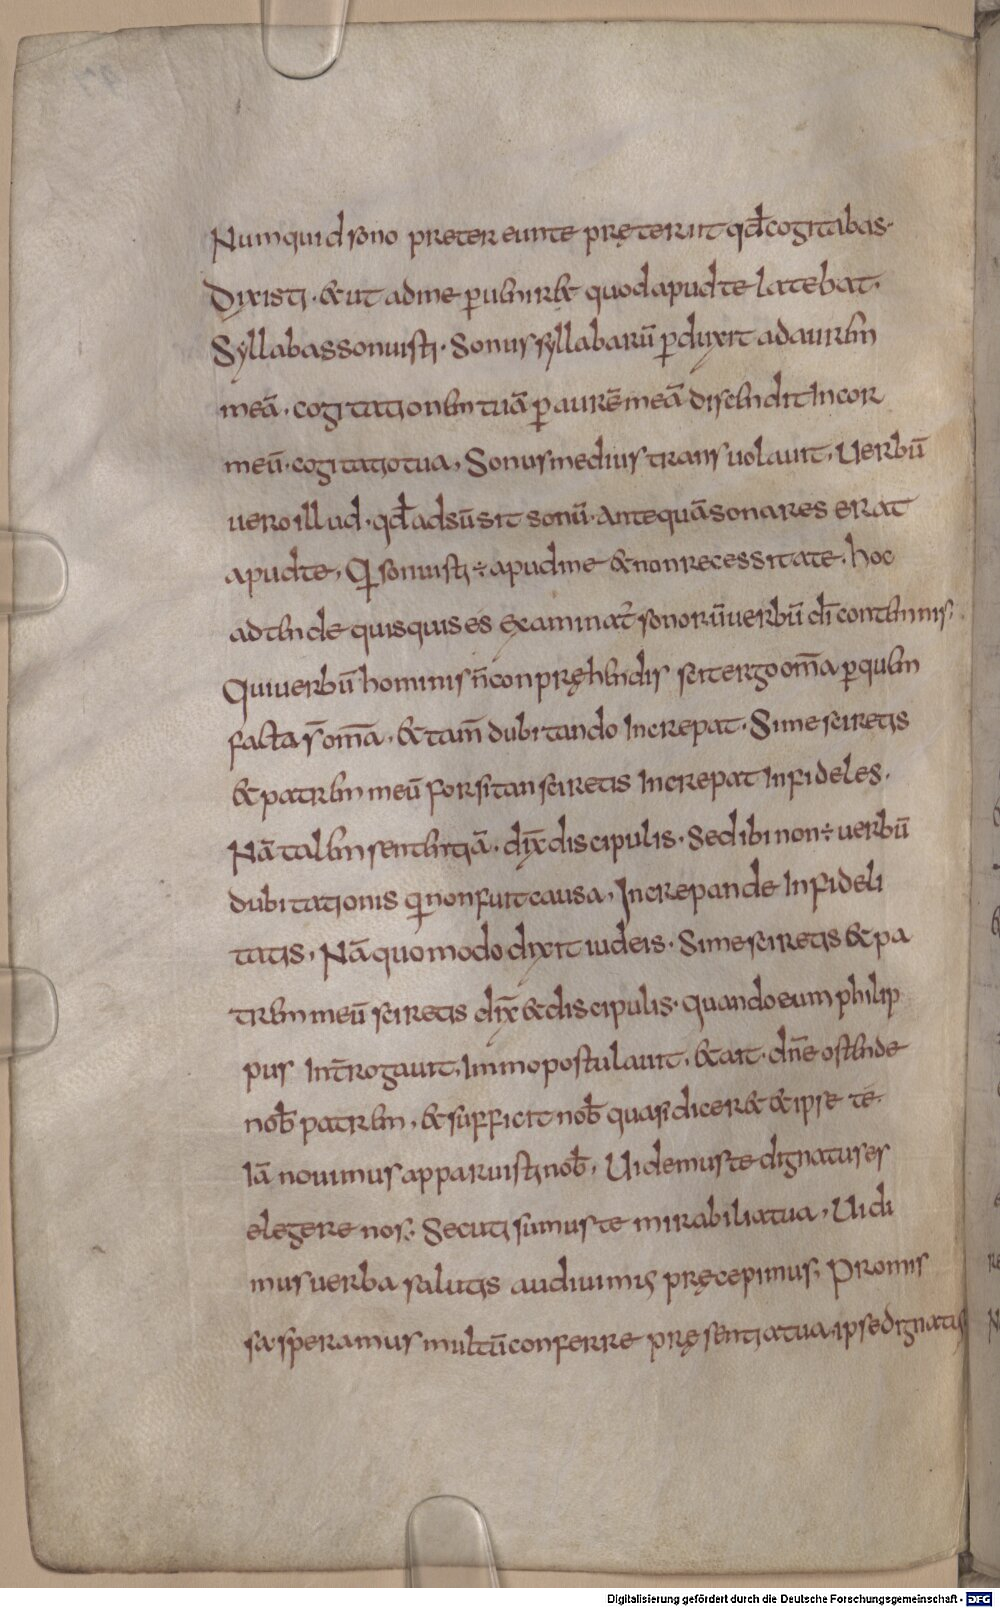 Numquid sono pretereunte pręteriit qđ cogitabas·
Dixisti· & ut ad me ꝑuenir& quod apud te latebat·
Syllabas sonuisti· Sonus syllabarū ꝑduxit ad aurem
meā· cogitationem tuā ꝑ aurē meā discendit In cor
meū· cogitatio tua, Sonus medius transuolauit, Uerbū
uero illud· qđ adsūsit sonū· antequā sonares erat
apud te, Qi sonuisti ÷ apud me & non recessit a te· hoc
adtende quisquis es examinat̄ sonorū uerbū dī contemnis,
Qui uerbū hominis n̄ conpręhendis scit ergo om̄a ꝑ quem
facta s̄ om̄a· & tam̄ dubitando Increpat· Si me sciretis
& patrem meū forsitan sciretis Increpat Infideles·
Nā talem sententiā· dix̄ discipulis· Sed ibi non ÷ uerbū
dubitationis qi non fuit causa, Increpande Infideli
tatis, Nā quomodo dixit iudeis· Si me sciretis & pa
trem meū sciretis dix̄ & discipulis· quando eum philip
pus Int̄rogauit, Immo postulauit, & ait· dn̄e ostende
nob̄ patrem, & sufficit nob̄ quasi dicer& & ipse té·
Iā nouimus apparuisti nob̄, Uidemus te dignatus es
elegere nos· Secuti sumus te mirabilia tua, Uidi
mus uerba salutis audiuimus pręcepimus, Promis
sa speramus multū conferre pręsentia tua ipse dignatus
Digitalisierung gefördert durch die Deutsche Forschungsgemeinschaft - DFG